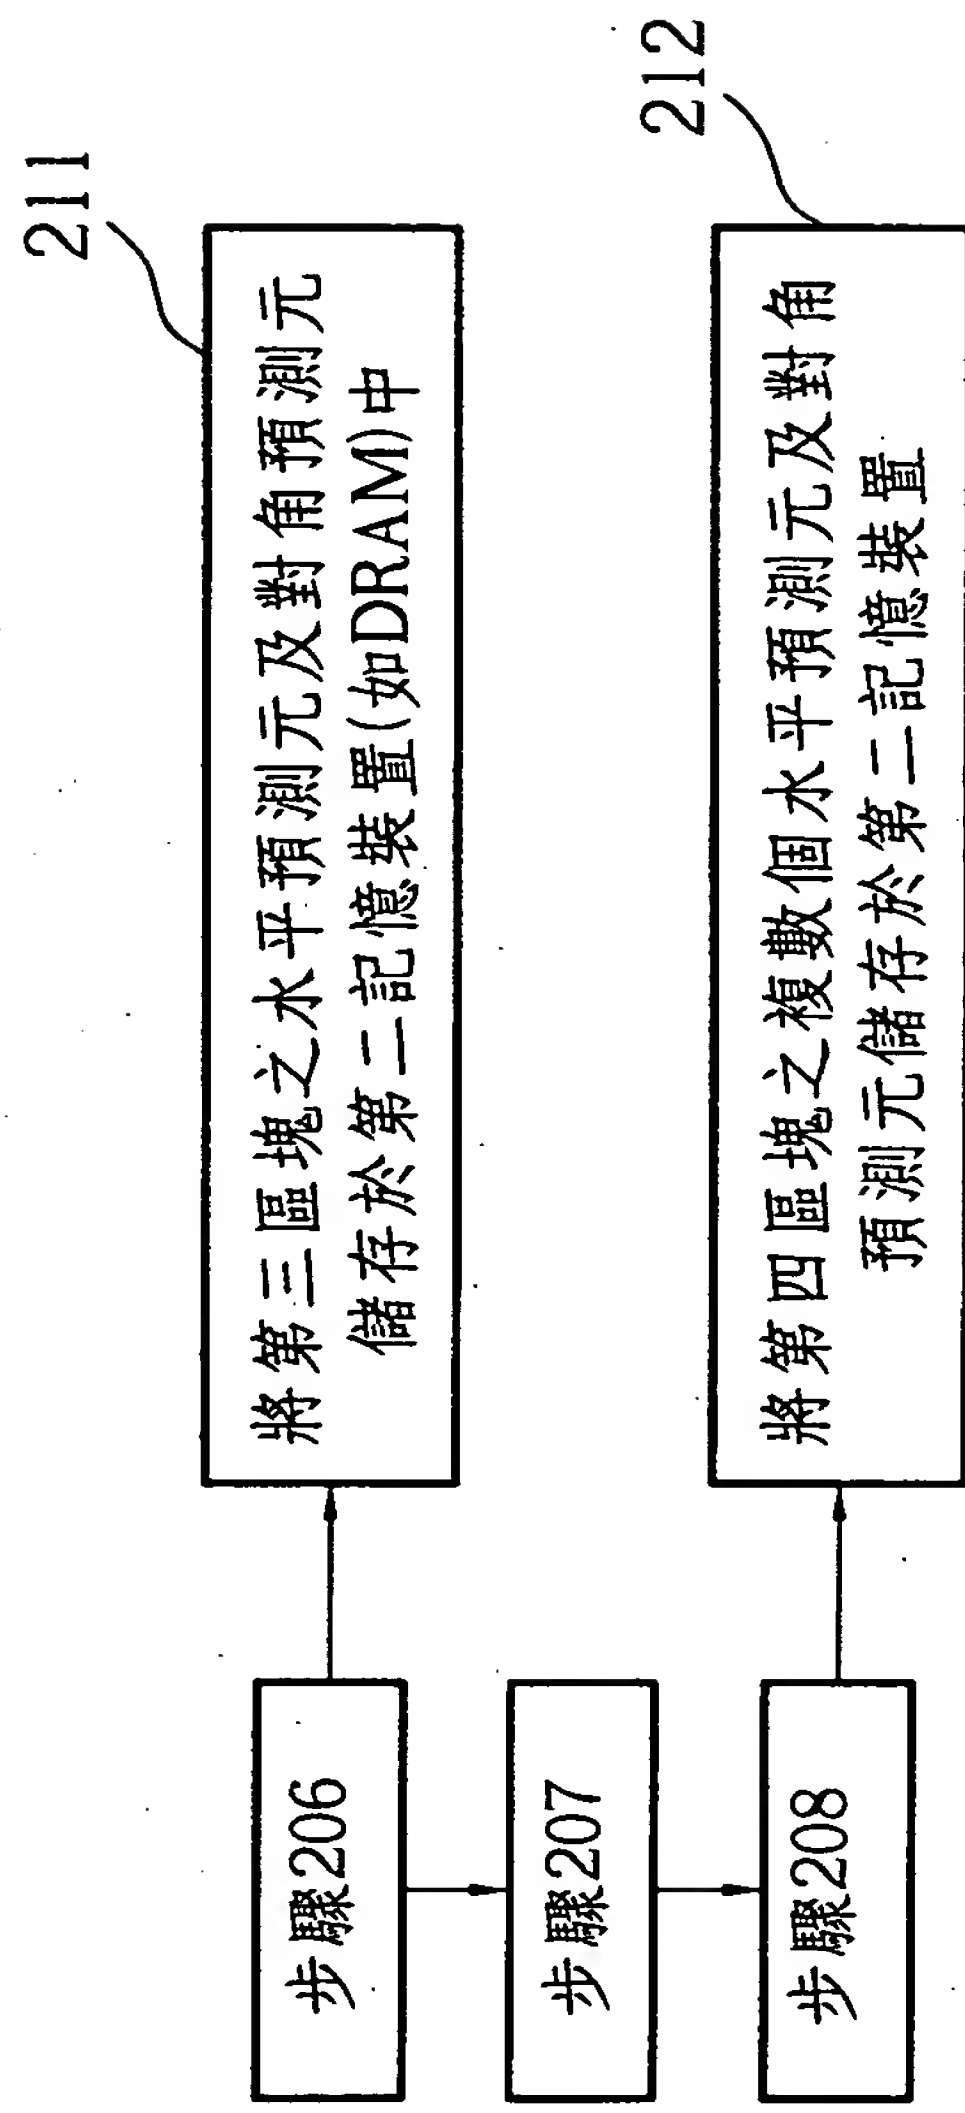 211
將第三區塊之水平預測元及對角預測元
儲存於第二記憶裝置(如DRAM)中
212
將第四區塊之複數個水平預測元及對角
預測元儲存於第二記憶裝置
步驟206
步驟207
步驟208